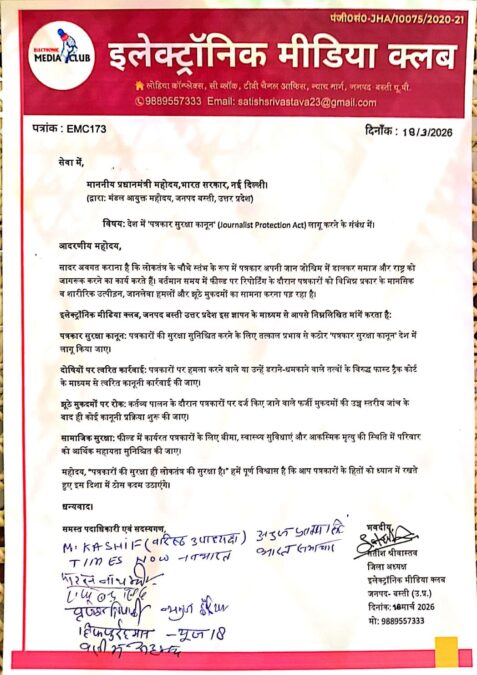 पंजी0सं0-JHA/10075/2020-21
ELECTRONIC
MEDIA CLUB
इलेक्ट्रॉनिक मीडिया क्लब
लोहिया कॉम्प्लेक्स, सी ब्लॉक, टीवी चैनल आफिस, न्याय मार्ग, जनपद- बस्ती यू.पी.
9889557333 Email: satishsrivastava23@gmail.com
पत्रांक : EMC173
दिनाँक : 18/3/2026
सेवा में,
माननीय प्रधानमंत्री महोदय,भारत सरकार, नई दिल्ली।
(द्वारा: मंडल आयुक्त महोदय, जनपद बस्ती, उत्तर प्रदेश)
विषय: देश में 'पत्रकार सुरक्षा कानून' (Journalist Protection Act) लागू करने के संबंध में।
आदरणीय महोदय,
सादर अवगत कराना है कि लोकतंत्र के चौथे स्तंभ के रूप में पत्रकार अपनी जान जोखिम में डालकर समाज और राष्ट्र को
जागरूक करने का कार्य करते हैं। वर्तमान समय में फील्ड पर रिपोर्टिंग के दौरान पत्रकारों को विभिन्न प्रकार के मानसिक
व शारीरिक उत्पीड़न, जानलेवा हमलों और झूठे मुकदमों का सामना करना पड़ रहा है।
इलेक्ट्रॉनिक मीडिया क्लब, जनपद बस्ती उत्तर प्रदेश इस ज्ञापन के माध्यम से आपसे निम्नलिखित मांगें करता है:
पत्रकार सुरक्षा कानून: पत्रकारों की सुरक्षा सुनिश्चित करने के लिए तत्काल प्रभाव से कठोर 'पत्रकार सुरक्षा कानून' देश में
लागू किया जाए।
दोषियों पर त्वरित कार्रवाई: पत्रकारों पर हमला करने वाले या उन्हें डराने-धमकाने वाले तत्वों के विरुद्ध फास्ट ट्रैक कोर्ट
के माध्यम से त्वरित कानूनी कार्रवाई की जाए।
झूठे मुकदमों पर रोक: कर्तव्य पालन के दौरान पत्रकारों पर दर्ज किए जाने वाले फर्जी मुकदमों की उच्च स्तरीय जांच के
बाद ही कोई कानूनी प्रक्रिया शुरू की जाए।
सामाजिक सुरक्षा: फील्ड में कार्यरत पत्रकारों के लिए बीमा, स्वास्थ्य सुविधाएं और आकस्मिक मृत्यु की स्थिति में परिवार
को आर्थिक सहायता सुनिश्चित की जाए।
महोदय, "पत्रकारों की सुरक्षा ही लोकतंत्र की सुरक्षा है।" हमें पूर्ण विश्वास है कि आप पत्रकारों के हितों को ध्यान में रखते
हुए इस दिशा में ठोस कदम उठाएंगे।
धन्यवाद।
समस्त पदाधिकारी एवं सदस्यगण,
M. KASHIF (वरिष्ठ उपाध्यक्ष)
TIMES NOW नवभारत
भारत समाचार
न्यूज 18
भवदीय
सतीश श्रीवास्तव
जिला अध्यक्ष
इलेक्ट्रॉनिक मीडिया क्लब
जनपद- बस्ती (उ.प्र.)
दिनांक: 18मार्च 2026
मो: 9889557333